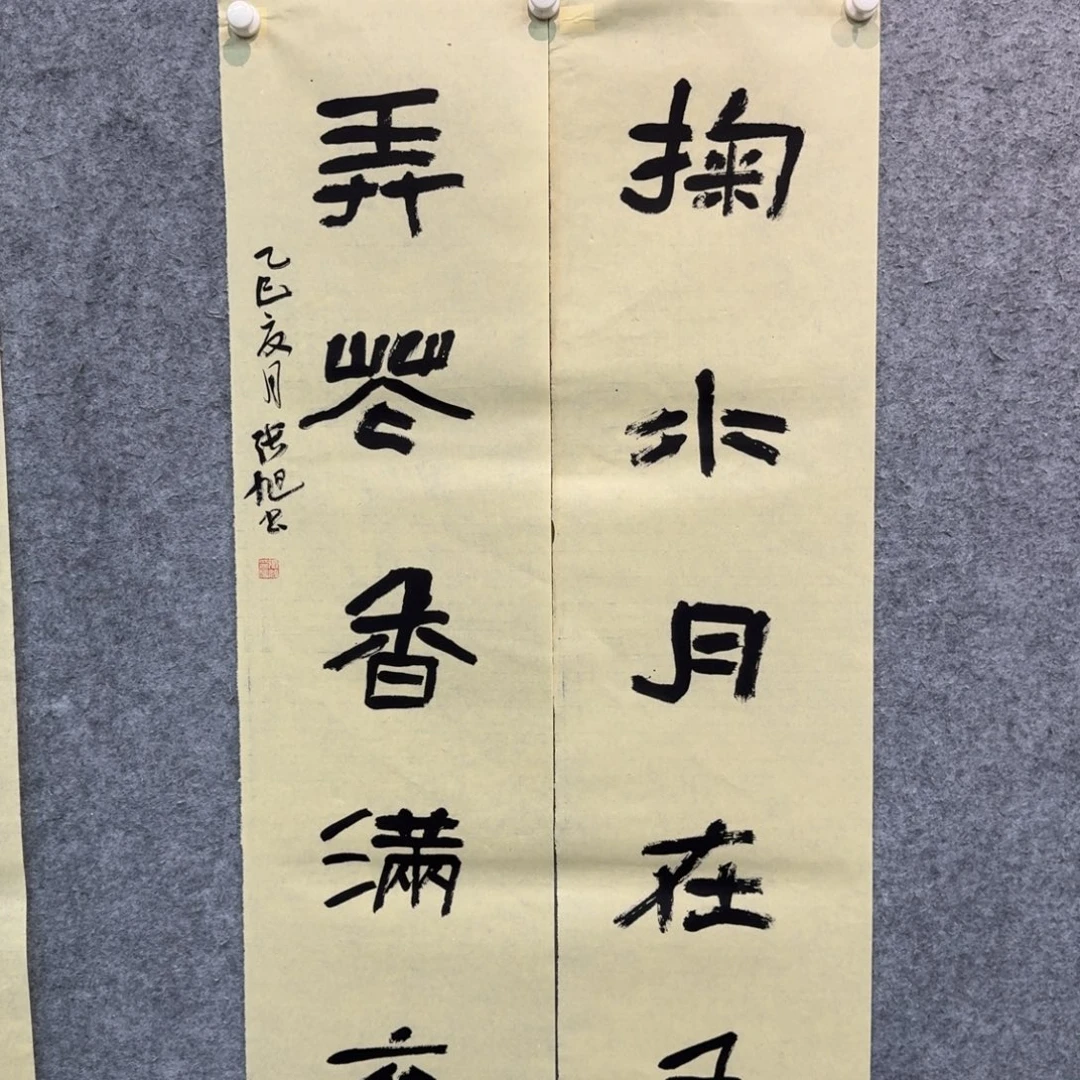 掬水月在手
弄花香满衣
乙巳夏月张旭书